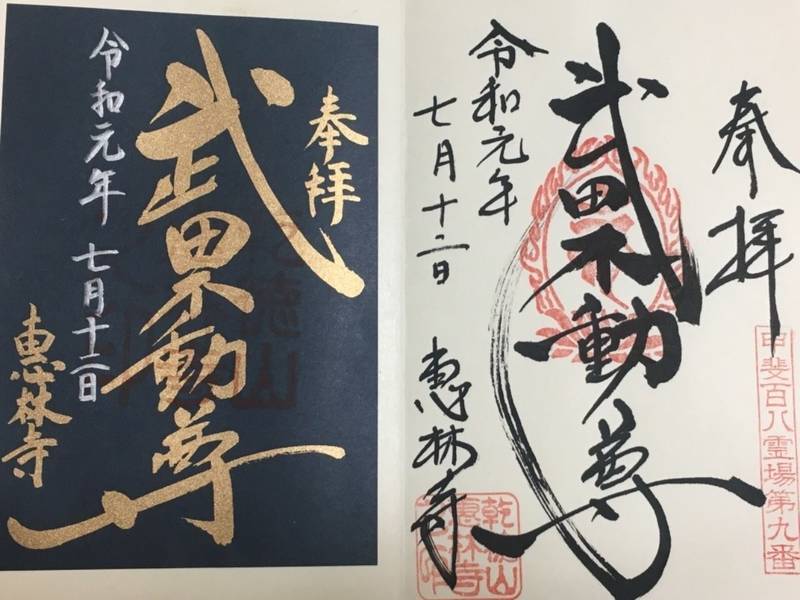 奉拝
甲斐百八霊場第九番
武田不動尊
令和元年
七月十二日
恵林寺
乾徳山
恵林寺
奉拝
武田不動尊
令和元年 七月十二日
恵林寺